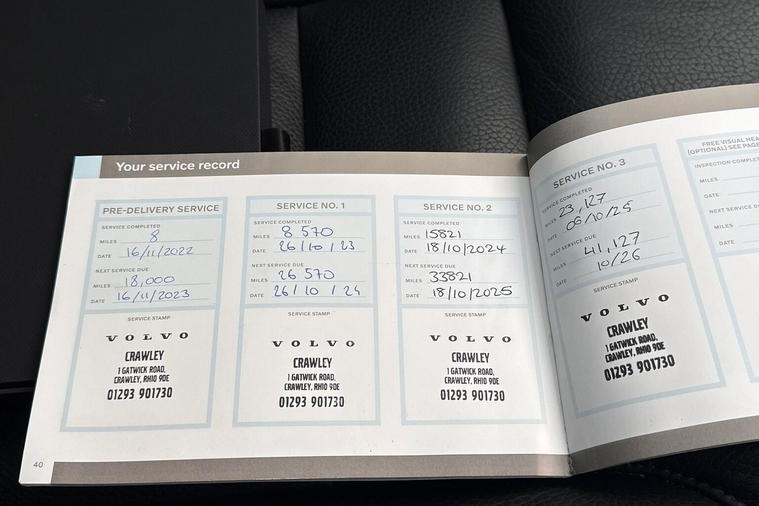 Your service record
PRE-DELIVERY SERVICE
SERVICE COMPLETED
MILES 8
DATE 16/11/2022
NEXT SERVICE DUE
MILES 18,000
DATE 16/11/2023
SERVICE STAMP
VOLVO
CRAWLEY
1 GATWICK ROAD,
CRAWLEY, RH10 9DE
01293 901730
SERVICE NO. 1
SERVICE COMPLETED
MILES 8 570
DATE 26/10/23
NEXT SERVICE DUE
MILES 26 570
DATE 26/10/24
SERVICE STAMP
VOLVO
CRAWLEY
1 GATWICK ROAD,
CRAWLEY, RH10 9DE
01293 901730
SERVICE NO. 2
SERVICE COMPLETED
MILES 15821
DATE 18/10/2024
NEXT SERVICE DUE
MILES 33821
DATE 18/10/2025
SERVICE STAMP
VOLVO
CRAWLEY
1 GATWICK ROAD,
CRAWLEY, RH10 9DE
01293 901730
SERVICE NO. 3
SERVICE COMPLETED
MILES 23,127
DATE 06/10/25
NEXT SERVICE DUE
MILES 41,127
DATE 10/26
SERVICE STAMP
VOLVO
CRAWLEY
1 GATWICK ROAD,
CRAWLEY, RH10 9DE
01293 901730
FREE VISUAL
(OPTIONAL) SEE
INSPECTION
MILES
DATE
NEXT SERVICE
MILES
DATE
40